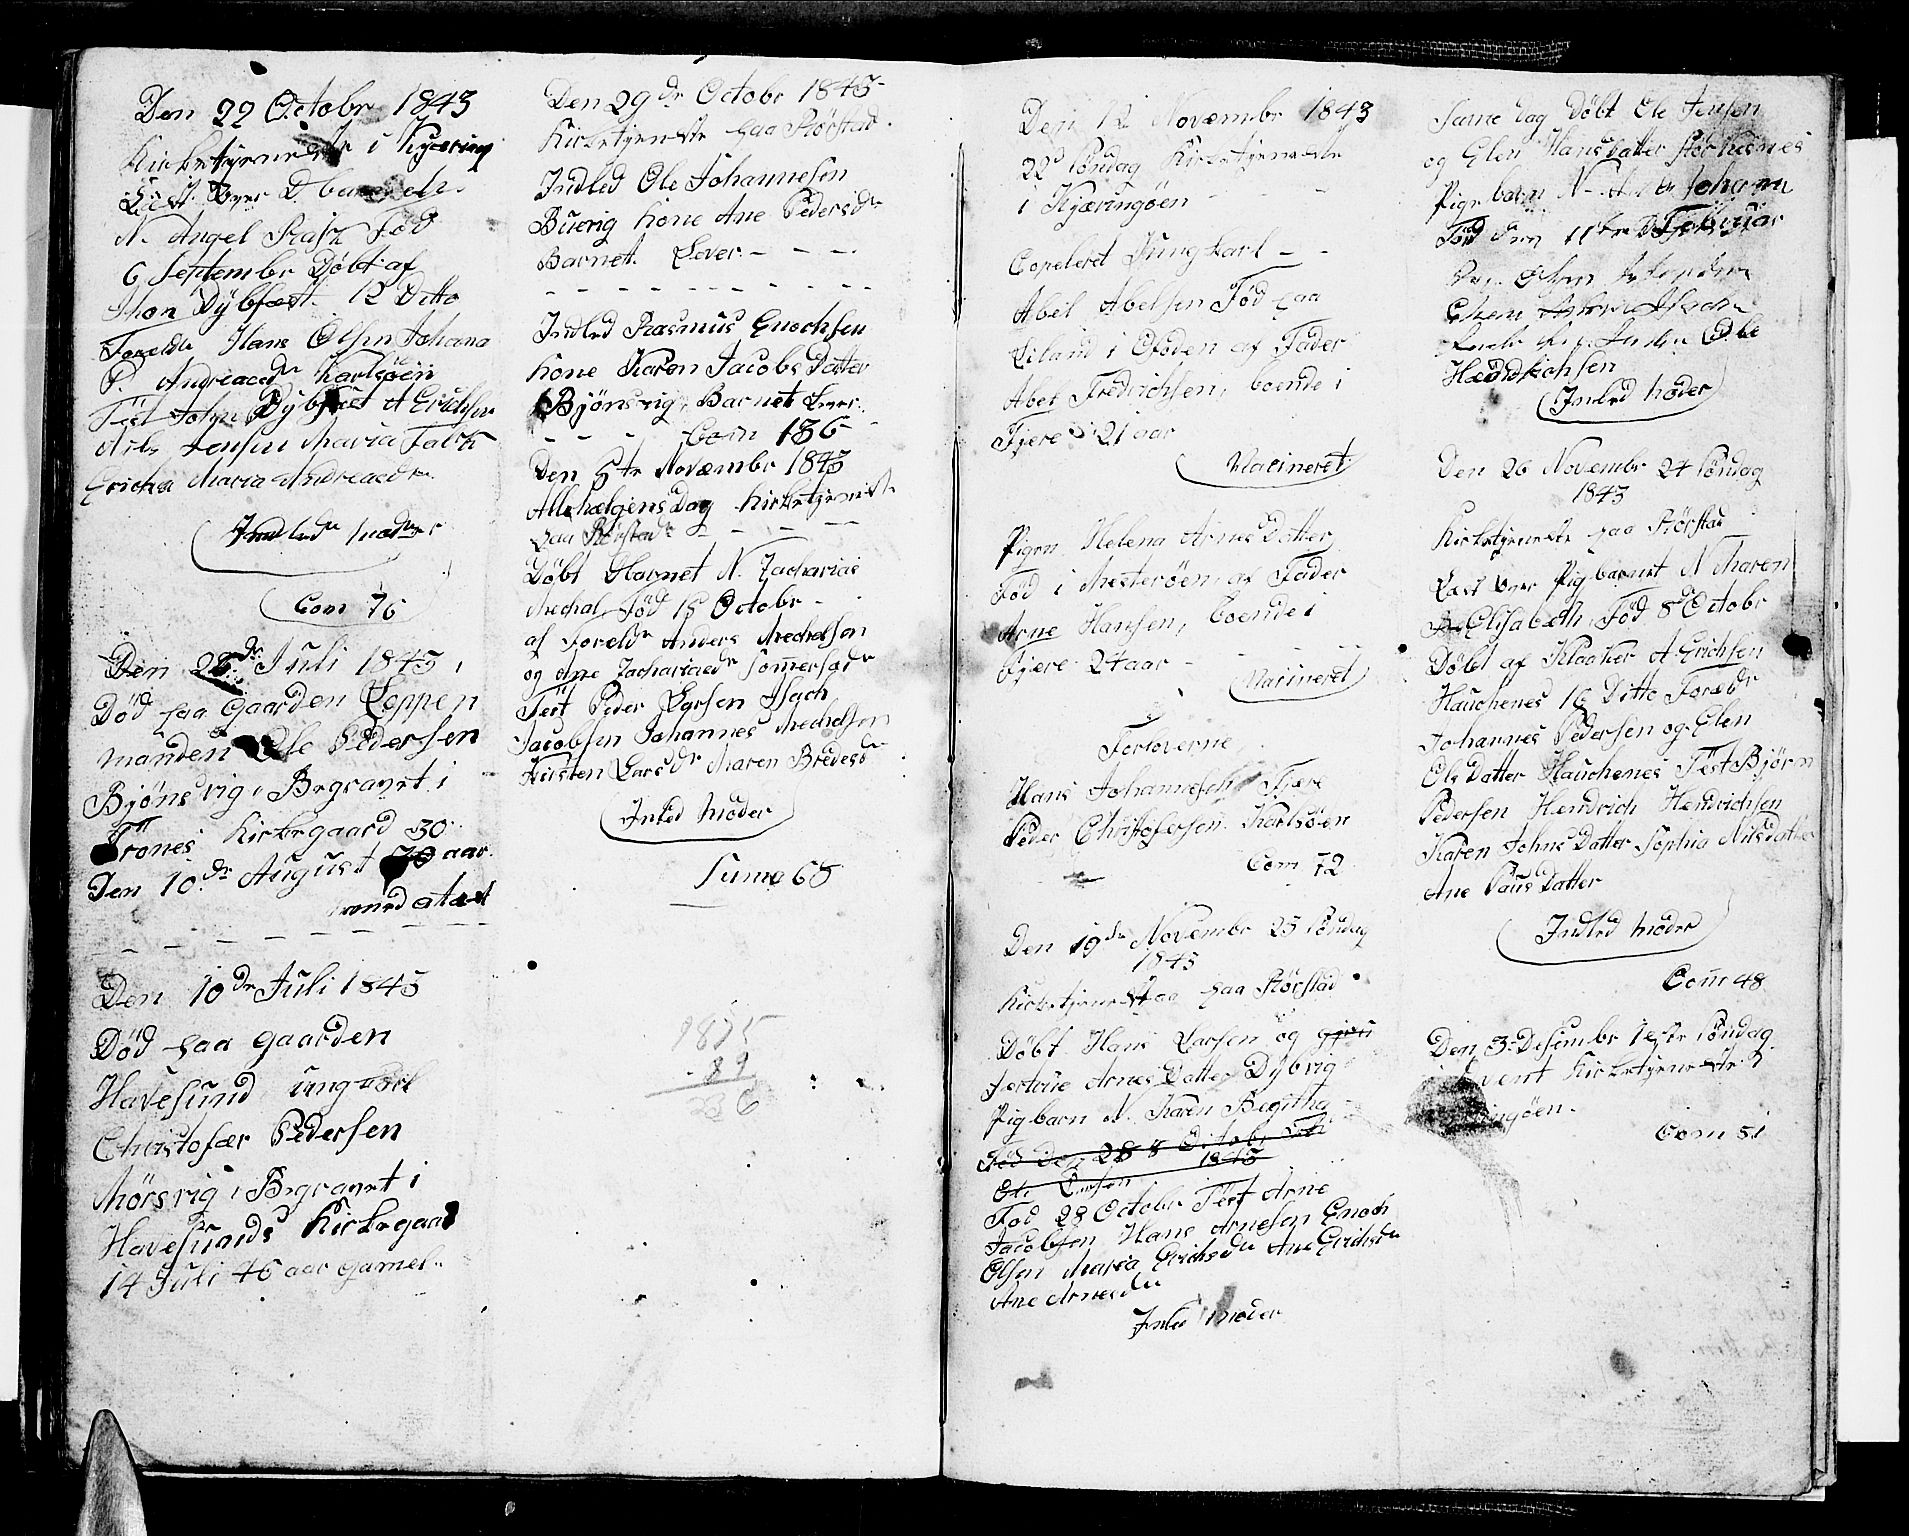 Den 22 Octobr 1843
Kirketjeneste i Kjæring
Læst over D. barnet
N. Angel Fød
6 Septembr Døbt af
Thon Dybfæst. 12 Ditto
Foreldr Hans Olsen Johana
P. Andreaedr Karlsöen
Test John Dybfæst A Erichsen
Nils Jensen Maria Falch
Ericha Maria Andreaedr
Indled moder
Com 76
Den 28dr Juli 1843
Død paa Gaarden Leppen
manden Ole Pedersen
Bjönsvig, Begravet i
Trones Kirkegaard 30
Den 10dr August aar
Den 10dr Juli 1843
Død paa gaarden
Havesund ungkarl
Christofær Pedersen
Mörsvig, Begravet i
Havesunds Kirkegaar
14 Juli 46 aar gamel
Den 29dr Octobr 1843
Kirketjeneste paa Rörstad
Indled Ole Johannesen
Buevig kone Ane Pedersdr
Barnet Lever
Indled Rasmus Enochsen
kone Karen Jacobs Datter
Bjönsvig, Barnet Lever
Com 136
Den 5te Novembr 1843
Allehelgens Dag Kirketjeneste
paa Rörstad
Döbt Barnet N. Zacharias
Mechal, Föd 15 Octobr
af Foreldr Anders Mechelsen
og Ane Zachariaedr Sommersædr
Test Peder Larsen Isach
Jacobsen Johannes Mechelsen
Kirsten Larsdr Maren Bredesdr
Inled Moder
Suma 68
1875
89
236
Den 12 Novembr 1843
22d Söndag Kirketjeneste
i Kjæringöen
Copeleret Ungkarl
Abel Abelsen Föd paa
Eiland i Ofoden af Fader
Abel Fredrichsen, boende i
Fjere 21 aar
Vacineret
Pigen Helena Arnes Datter
Föd i Mesteröen, af Fader
Arne Hansen, boende i
Fjere 24 aar
Vacineret
Forloverne
Hans Johannesen Fjere
Peder Christofersen Karlsöen
Com 72
Den 19de Novembr 23 Söndag
1843
Kirketjeneste paa Rörstad
Döbt Hans Larsen og
Jertrue Arnes Datter Dybvig
Pigbarn N. Karen Begitha
Föd Den 28 8 Octobr
1843
Ole Larsen
Fød 28 October Test Arne
Jacobsen Hans Arnesen Enoch
Olsen Maria Erichsdr Ane Erichsdr
Ane Arnesdr
Inled Moder
Same dag Døbt Ole Jensen
og Elen Hansdatter Störkesnes
Pige barn N. Johana
Föd Den 11te Februar
Hendrichsen
Inled moder
Den 26 Novembr 24 Söndag
1843
Kirketjeneste paa Rörstad
Læst over Pigbarnet N Maren
Elisabeth, Föd 8d Octobr
Döbt af Klocker A Erichsen
Hauchenes 16 Ditto Forældr
Johannes Pedersen og Elen
Ols Datter Hauchenes Test Bjørn
Pedersen Hendrich Hendrichsen
Karen Johns Datter Sophia Nilsdatter
Ane Pauls Datter
Indled Moder
Com 48
Den 3 Desembr 1este Söndag
i Advent Kirketjeneste i
Kjæringöen
Com 51